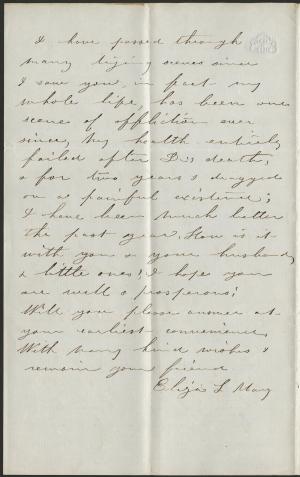 I have passed through
many trying scenes since
I saw you, in fact my
whole life, has been one
scene of affliction ever
since, My health entirely
failed after D's death,
& for two years I dragged
on a painful existence;
I have been much better
the past year. How is it
with you & your husband,
& little ones! I hope you
are well & prosperous;
Will you please answer at
your earliest convenience,
With many kind wishes I
remain your friend
Eliza L